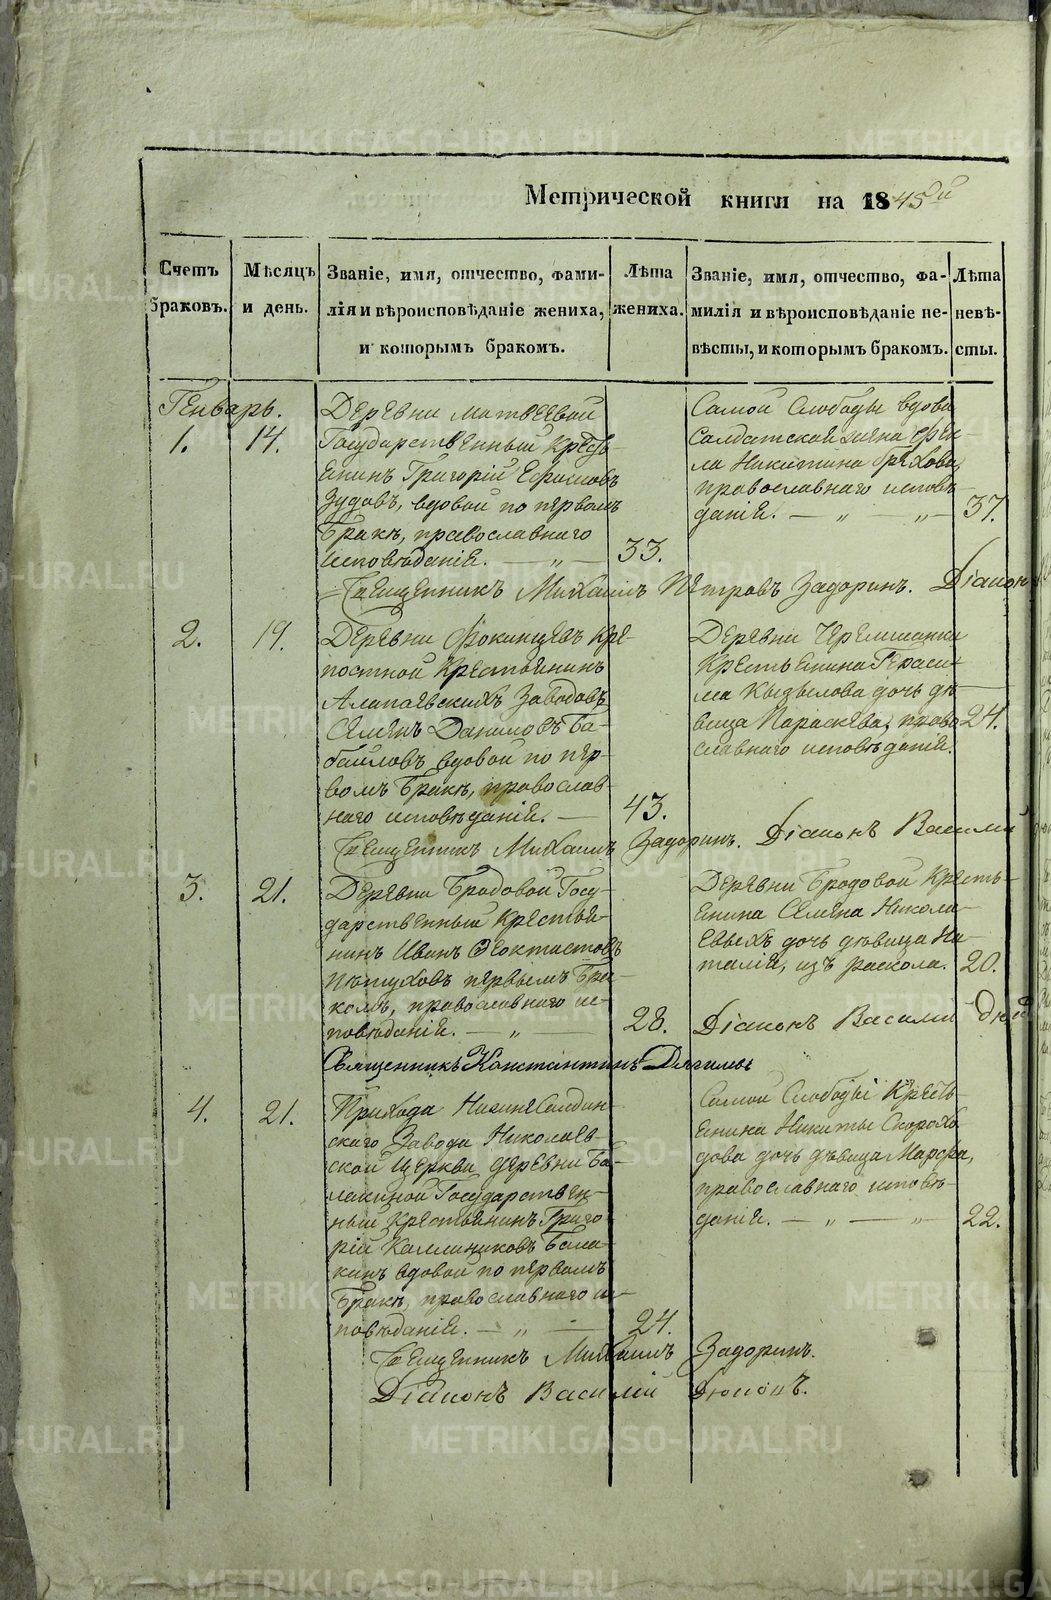 Метрической книги на 1845й
Счетъ браковъ.
Мѣсяцъ и день.
Званіе, имя, отчество, фами-
лія и вѣроисповѣданіе жениха,
и которымъ бракомъ.
Лѣта жениха.
Званіе, имя, отчество, фа-
милія и вѣроисповѣданіе не-
вѣсты, и которымъ бракомъ.
Лѣта невѣ-
сты.
Генварь.
1. 14.
Деревни Матвеевой
Государственный Кресть-
янинъ Григорій Ефимовъ
Зудовъ, вдовой по первомъ
Бракѣ, православнаго
исповѣданія. — „ — 33.
Самой Слободы вдова
Салдатская жена
Никитина Грехова,
православнаго исповѣ-
данія. — „ — „ — 37.
Священникъ Михаилъ Петровъ Задоринъ. Діаконъ
2. 19.
Деревни Фокинцевъ Кре-
постной Крестьянинъ
Алапаевскихъ Заводовъ
Семенъ Даниловъ Ба-
байловъ вдовой по пер-
вомъ Бракѣ, православ-
наго исповѣданія. — 43.
Деревни Черемшанки
Крестьянина Гераси-
ма Кызылова дочь дѣ-
вица Параскева, право- 24.
славнаго исповѣданія.
Священникъ Михаилъ Задоринъ. Діаконъ Василій
3. 21.
Деревни Бродовой Госу-
дарственный Крестья-
нинъ Иванъ Феоктистовъ
Пѣтуховъ первымъ Бра-
комъ, православнаго ис-
повѣданія. — „ — 28.
Деревни Бродовой Кресть-
янина Семена Никола-
евыхъ дочь дѣвица На-
талія, изъ раскола. 20.
Діаконъ Василій
Священникъ Константинъ Дягилевъ
4. 21.
Прихода Нижнесалдин-
скаго Завода Николаев-
ской Церкви деревни Ба-
лакиной Государствен-
ный Крестьянинъ Григо-
рій Каллиниковъ Бала-
кинъ вдовой по первомъ
Бракѣ, православнаго ис-
повѣданія. — „ — 24.
Самой Слободы Кресть-
янина Никиты Скорохо-
дова дочь дѣвица Марфа,
православнаго исповѣ-
данія. — „ — „ — 22.
Священникъ Михаилъ Задоринъ.
Діаконъ Василій
METRIKI.GASO-URAL.RU